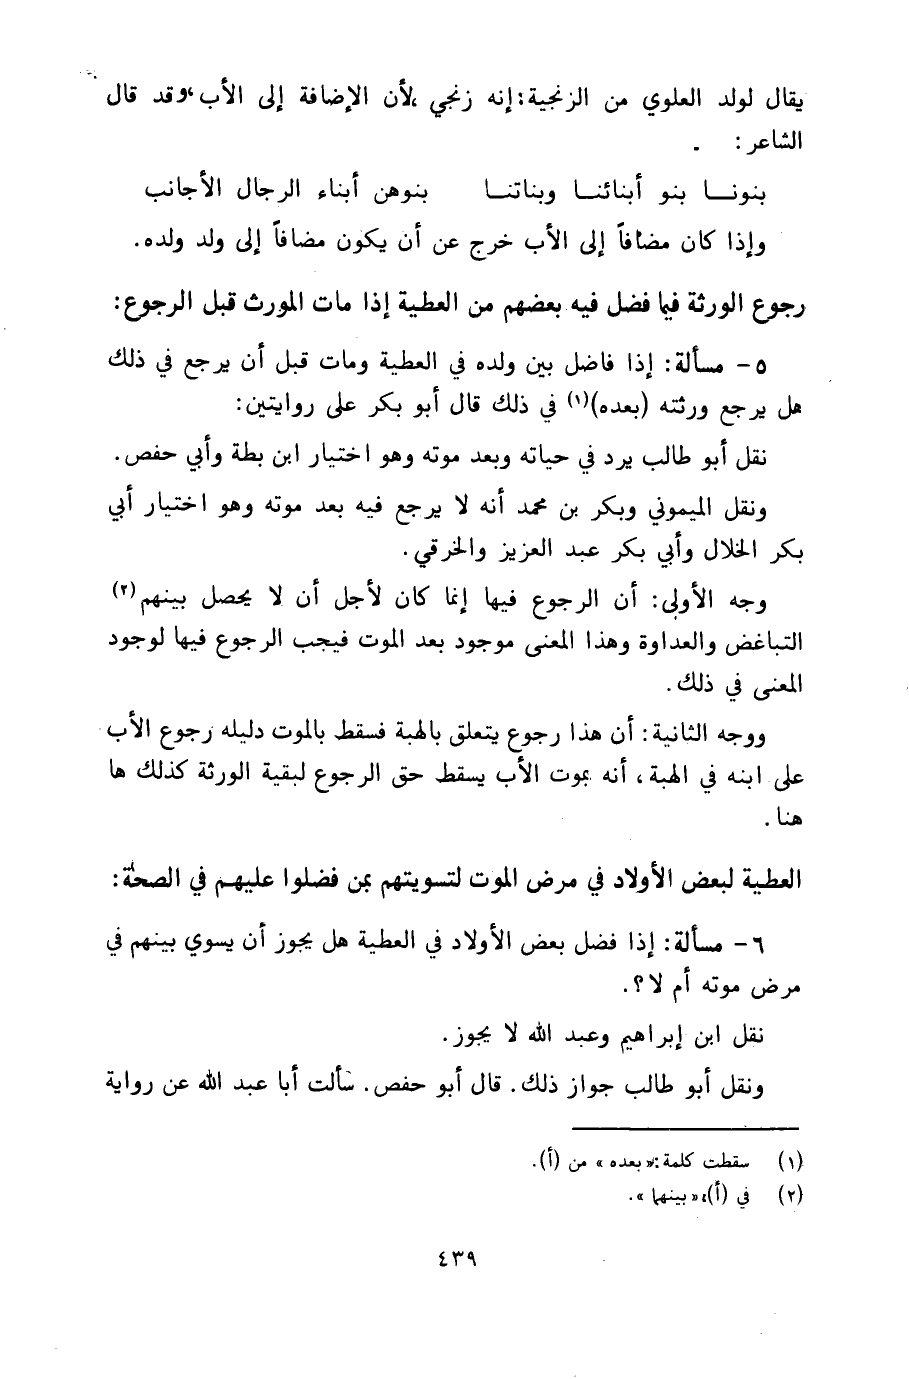 يقال لولد العلوي من الزنجية: إنه زنجي، لأن الإضافة إلى الأب، وقد قال
الشاعر:
بنونـــا بنو أبنائنـــا وبناتنـــا بنوهن أبناء الرجال الأجانب
وإذا كان مضافاً إلى الأب خرج عن أن يكون مضافاً إلى ولد ولده.
رجوع الورثة فيما فضل فيه بعضهم من العطية إذا مات المورث قبل الرجوع:
٥ - مسألة: إذا فاضل بين ولده في العطية ومات قبل أن يرجع في ذلك
هل يرجع ورثته (بعده)(١) في ذلك قال أبو بكر على روايتين:
نقل أبو طالب يرد في حياته وبعد موته وهو اختيار ابن بطة وأبي حفص.
ونقل الميموني وبكر بن محمد أنه لا يرجع فيه بعد موته وهو اختيار أبي
بكر الخلال وأبي بكر عبد العزيز والخرقي.
وجه الأولى: أن الرجوع فيها إنما كان لأجل أن لا يحصل بينهم(٢)
التباغض والعداوة وهذا المعنى موجود بعد الموت فيجب الرجوع فيها لوجود
المعنى في ذلك.
ووجه الثانية: أن هذا رجوع يتعلق بالهبة فسقط بالموت دليله رجوع الأب
على ابنه في الهبة، أنه بموت الأب يسقط حق الرجوع لبقية الورثة كذلك ها
هنا.
العطية لبعض الأولاد في مرض الموت لتسويتهم بمن فضلوا عليهم في الصحة:
٦ - مسألة: إذا فضل بعض الأولاد في العطية هل يجوز أن يسوي بينهم في
مرض موته أم لا؟.
نقل ابن إبراهيم وعبد الله لا يجوز.
ونقل أبو طالب جواز ذلك. قال أبو حفص. سألت أبا عبد الله عن رواية
(١) سقطت كلمة: «بعده» من (أ).
(٢) في (أ): «بينهما».
٤٣٩